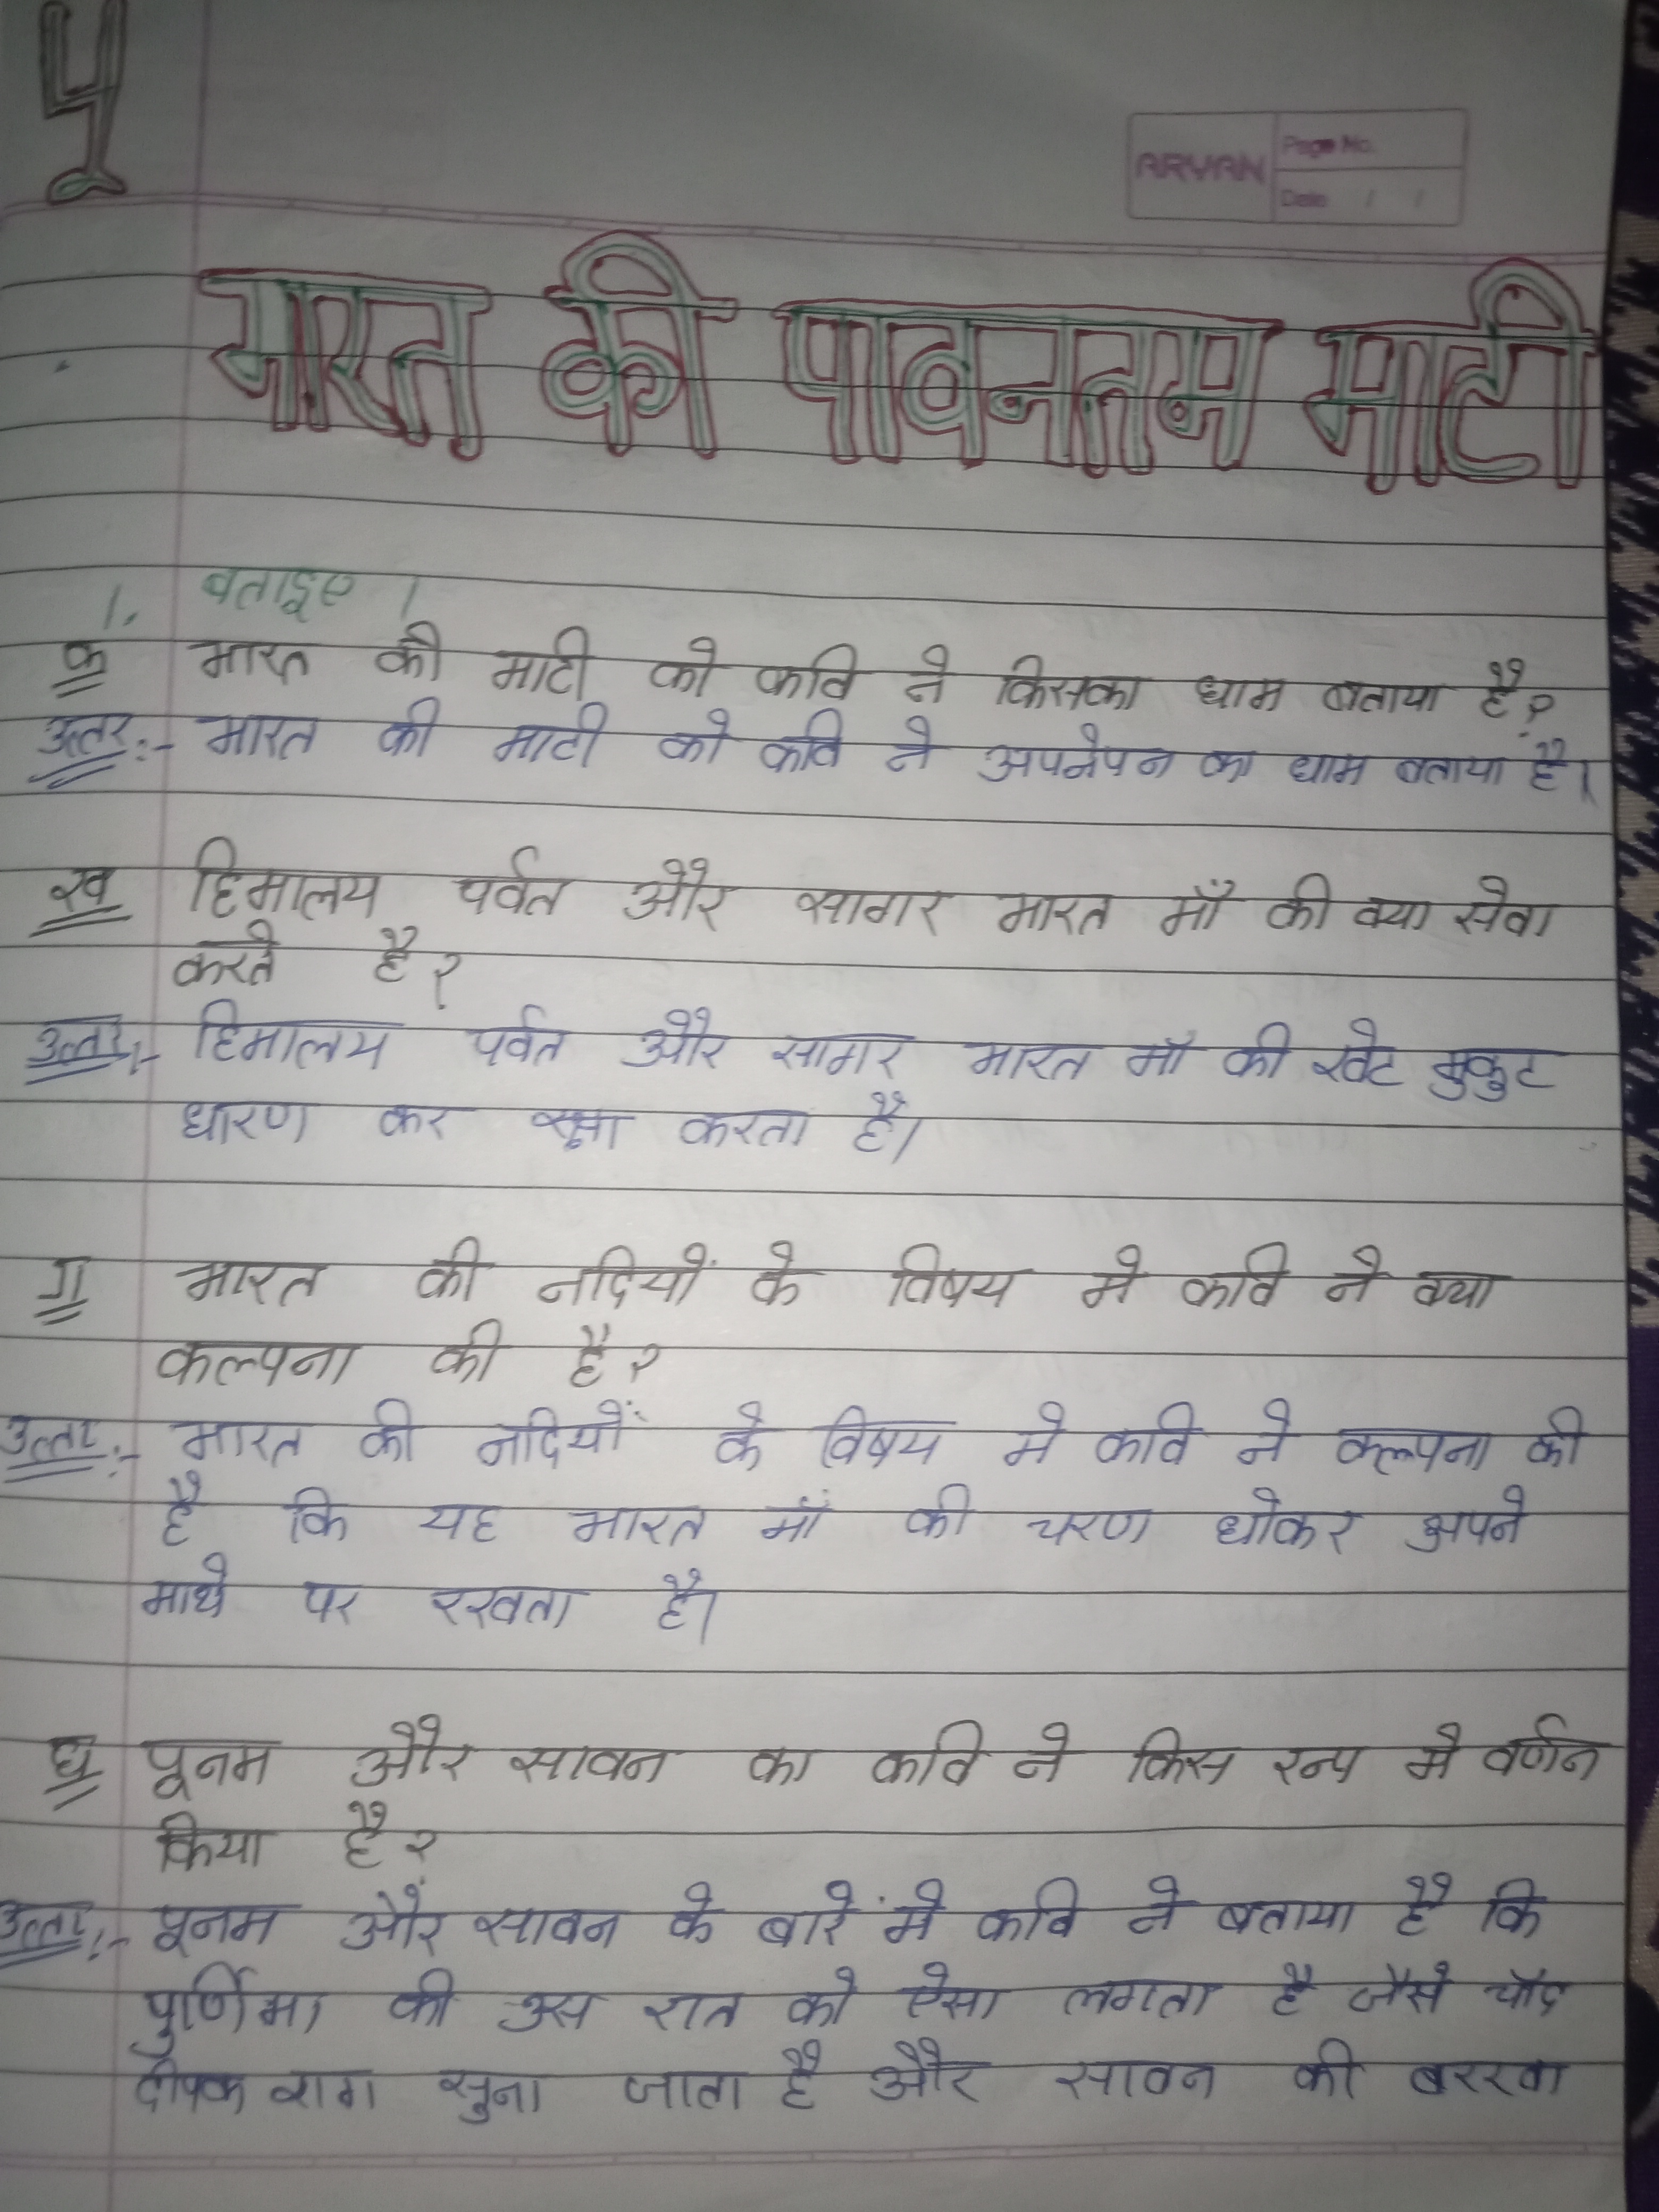 ५
ARYAN
Page No.
Date / /
भारत की पावनतम माटी
1. बताइए ।
क भारत की माटी को कवि ने किसका धाम बताया है?
उत्तर:- भारत की माटी को कवि ने अपनेपन का धाम बताया है।
ख हिमालय पर्वत और सागर भारत माँ की क्या सेवा
करते है?
उत्तर:- हिमालय पर्वत और सागर भारत माँ की खेट मुकुट
धारण कर रक्षा करता है।
ग भारत की नदियों के विषय मे कवि ने क्या
कल्पना की है?
उत्तर:- भारत की नदियों के विषय मे कवि ने कल्पना की
है कि यह भारत माँ की चरण धोकर अपने
माथे पर रखता है।
घ पूनम और सावन का कवि ने किस रूप मे वर्णन
किया है?
उत्तर:- पूनम और सावन के बारे में कवि ने बताया है कि
पुर्णिमा की उस रात को ऐसा लगता है जैसे चाँद
दीपक राग सुना जाता है और सावन की बरखा